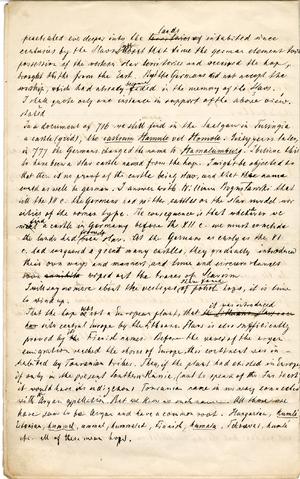 lands
penetrated ever deeper into the inhabited since
centuries by the Slavs. At that time the german element took
possession of the western slav territories and received the hop,
brought hither from the East. But the Germans did not accept the
worship, which had already faded in the memory of the Slavs.
I shall quote only one instance in support of the above view,
stated
In a document of 716 we still find in the Saalgau in Turingia
a castle (wrid), the castrum Hamulo vel Homole. Sixty years later,
in 777 the Germans changed the name to Hamalumburg. I believe this
to have been a slav castle named from the hop. It might be objected to
that there is no proof of the castle being slav, and that the name
could as well be german. I answer with W. Bogusławski that
till the XI c. the Germans had not the castles on the Slav model nor
cities of the roman type. The consequence is that whichever we
find a castle in Germany before the XII c. we must conclude
the lands had been slav. As the German as early as the VIII
c. had conquered a great many castles, they gradually introduced
their own ways and manners, and time and circumstances
wiped out the traces of Slavism.
Until now were about the vestiges of hops, it is time
to wind up.
it was introduced
But the hop was not a European plant, that
into central Europe by the Slavs is also sufficiently
proved by the Finnish names. Before the waves of the aryan
emigration reached the shores of Europe this continent was in-
habited by Turanian tribes. Then, if the plant had existed in Europe
if only in the present southern Russia, (not to speak of the Far West)
it would have an indigenous Turanian name in no way connected
with Aryan appellation. But we know no such name. All those we
have seen to be Aryan and have a common root. Hungarian, komló
Estonian, hummal, ummal, hummalid, Finnish, humala,
etc. all of these mean hops.